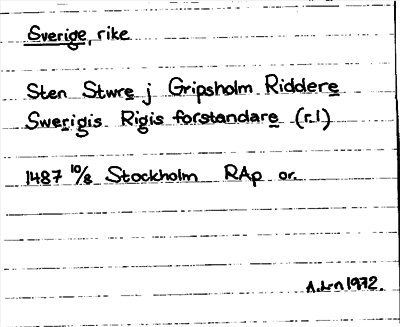 Sverige, rike
Sten Stwre j Gripsholm Riddere
Swerigis Rigis forstandare (r.1)
1487 10/8 Stockholm RAp or.
A.Lrn 1972.